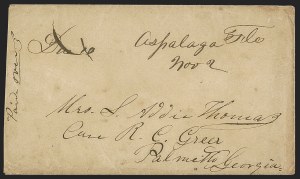 Due 10
Aspalaga Flo
Nov 2
Mrs. L. Addie Thomas
Care R. C. Greer
Palmetto Georgia